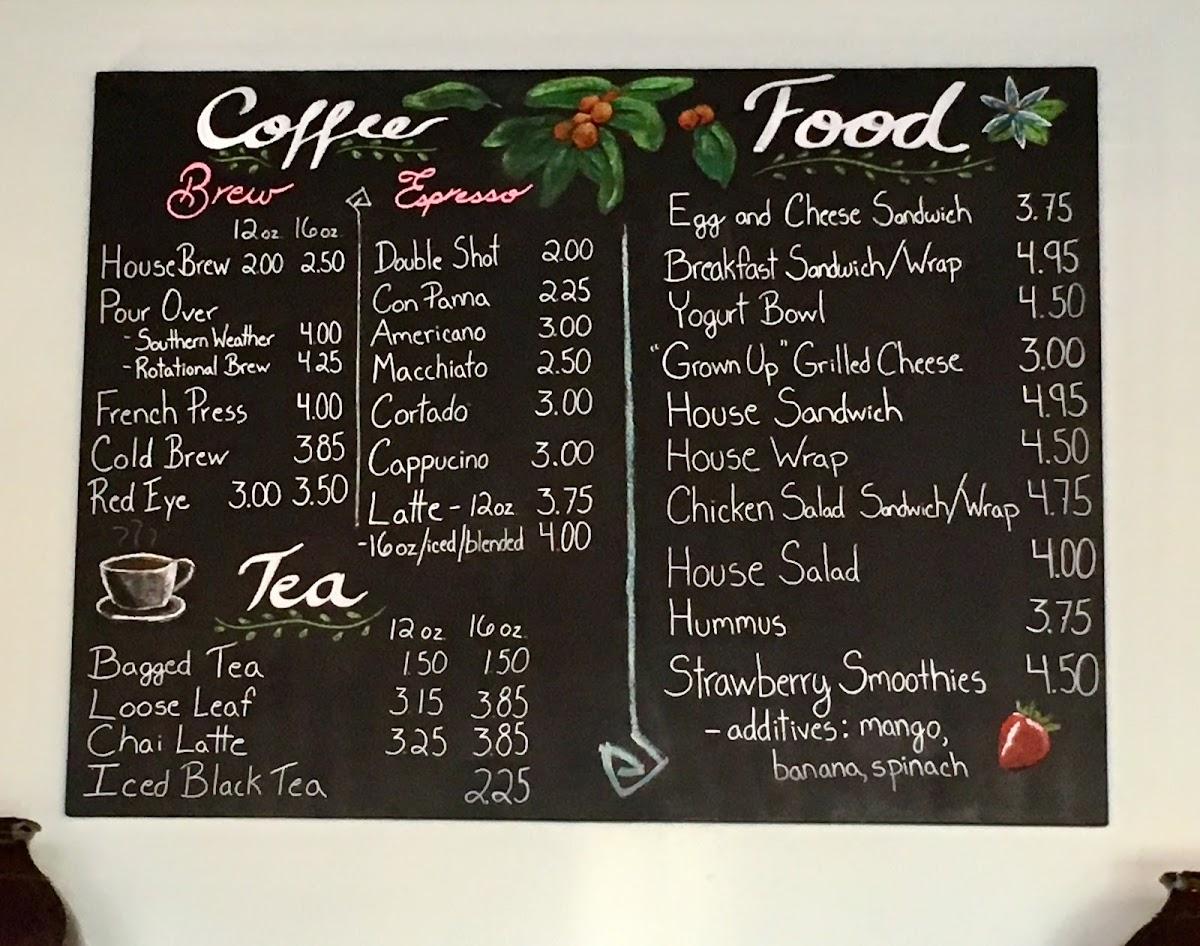 Coffee
Brew
12 oz 16 oz
House Brew 2.00 2.50
Pour Over
- Southern Weather 4.00
- Rotational Brew 4.25
French Press 4.00
Cold Brew 3.85
Red Eye 3.00 3.50
Espresso
Double Shot 2.00
Con Pama 2.25
Americano 3.00
Macchiato 2.50
Cortado 3.00
Cappucino 3.00
Latte - 12oz 3.75
- 16 oz/iced/blended 4.00
Tea
12 oz 16 oz
Bagged Tea 1.50 1.50
Loose Leaf 3.15 3.85
Chai Latte 3.25 3.85
Iced Black Tea 2.25
Food
Egg and Cheese Sandwich 3.75
Breakfast Sandwich/Wrap 4.95
Yogurt Bowl 4.50
"Grown Up" Grilled Cheese 3.00
House Sandwich 4.95
House Wrap 4.50
Chicken Salad Sandwich/Wrap 4.75
House Salad 4.00
Hummus 3.75
Strawberry Smoothies 4.50
- additives: mango,
banana, spinach